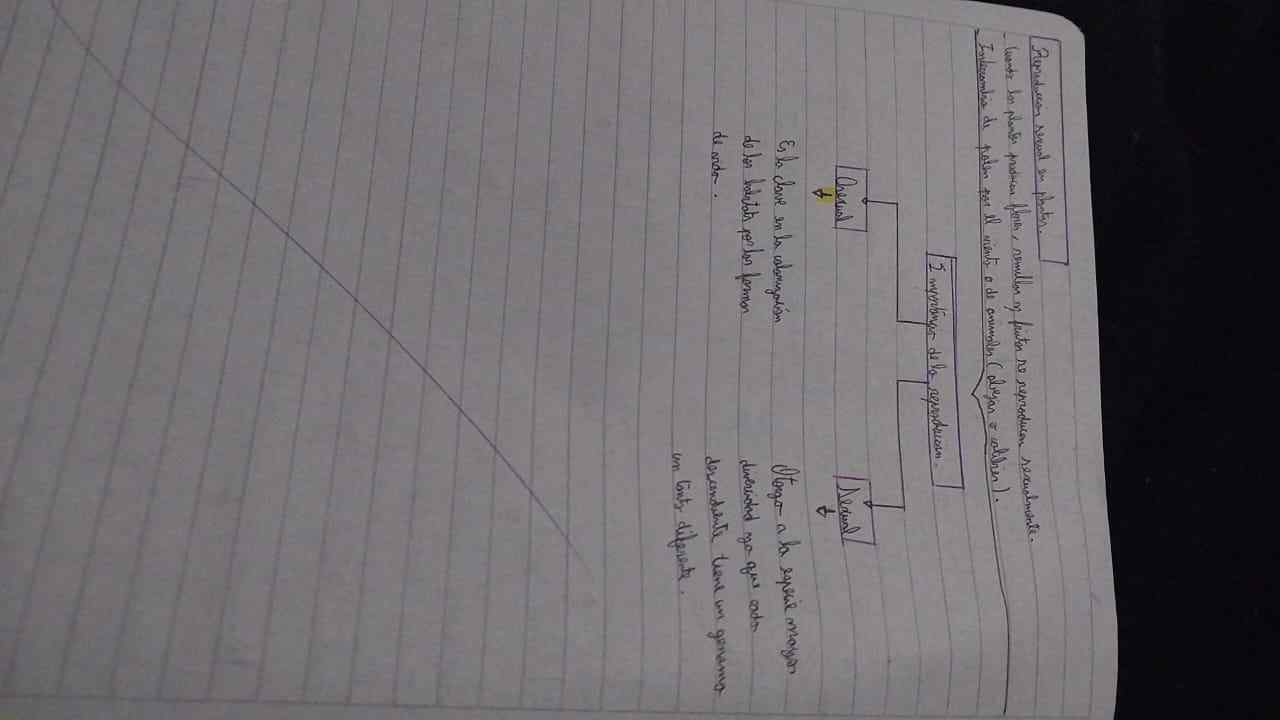 Reproduccion sexual en plantas.
Cuando las plantas producen flores, semillas y frutos se reproducen sexualmente.
Intercambio de polen por el viento o de animales (abejas o colibries).
Importancia de la reproduccion.
Asexual
Sexual
Es la clave en la colonización
de los habitats por las formas
de vida.
Otorga a la especie mayor
diversidad ya que cada
descendiente tiene un genoma
un tanto diferente.